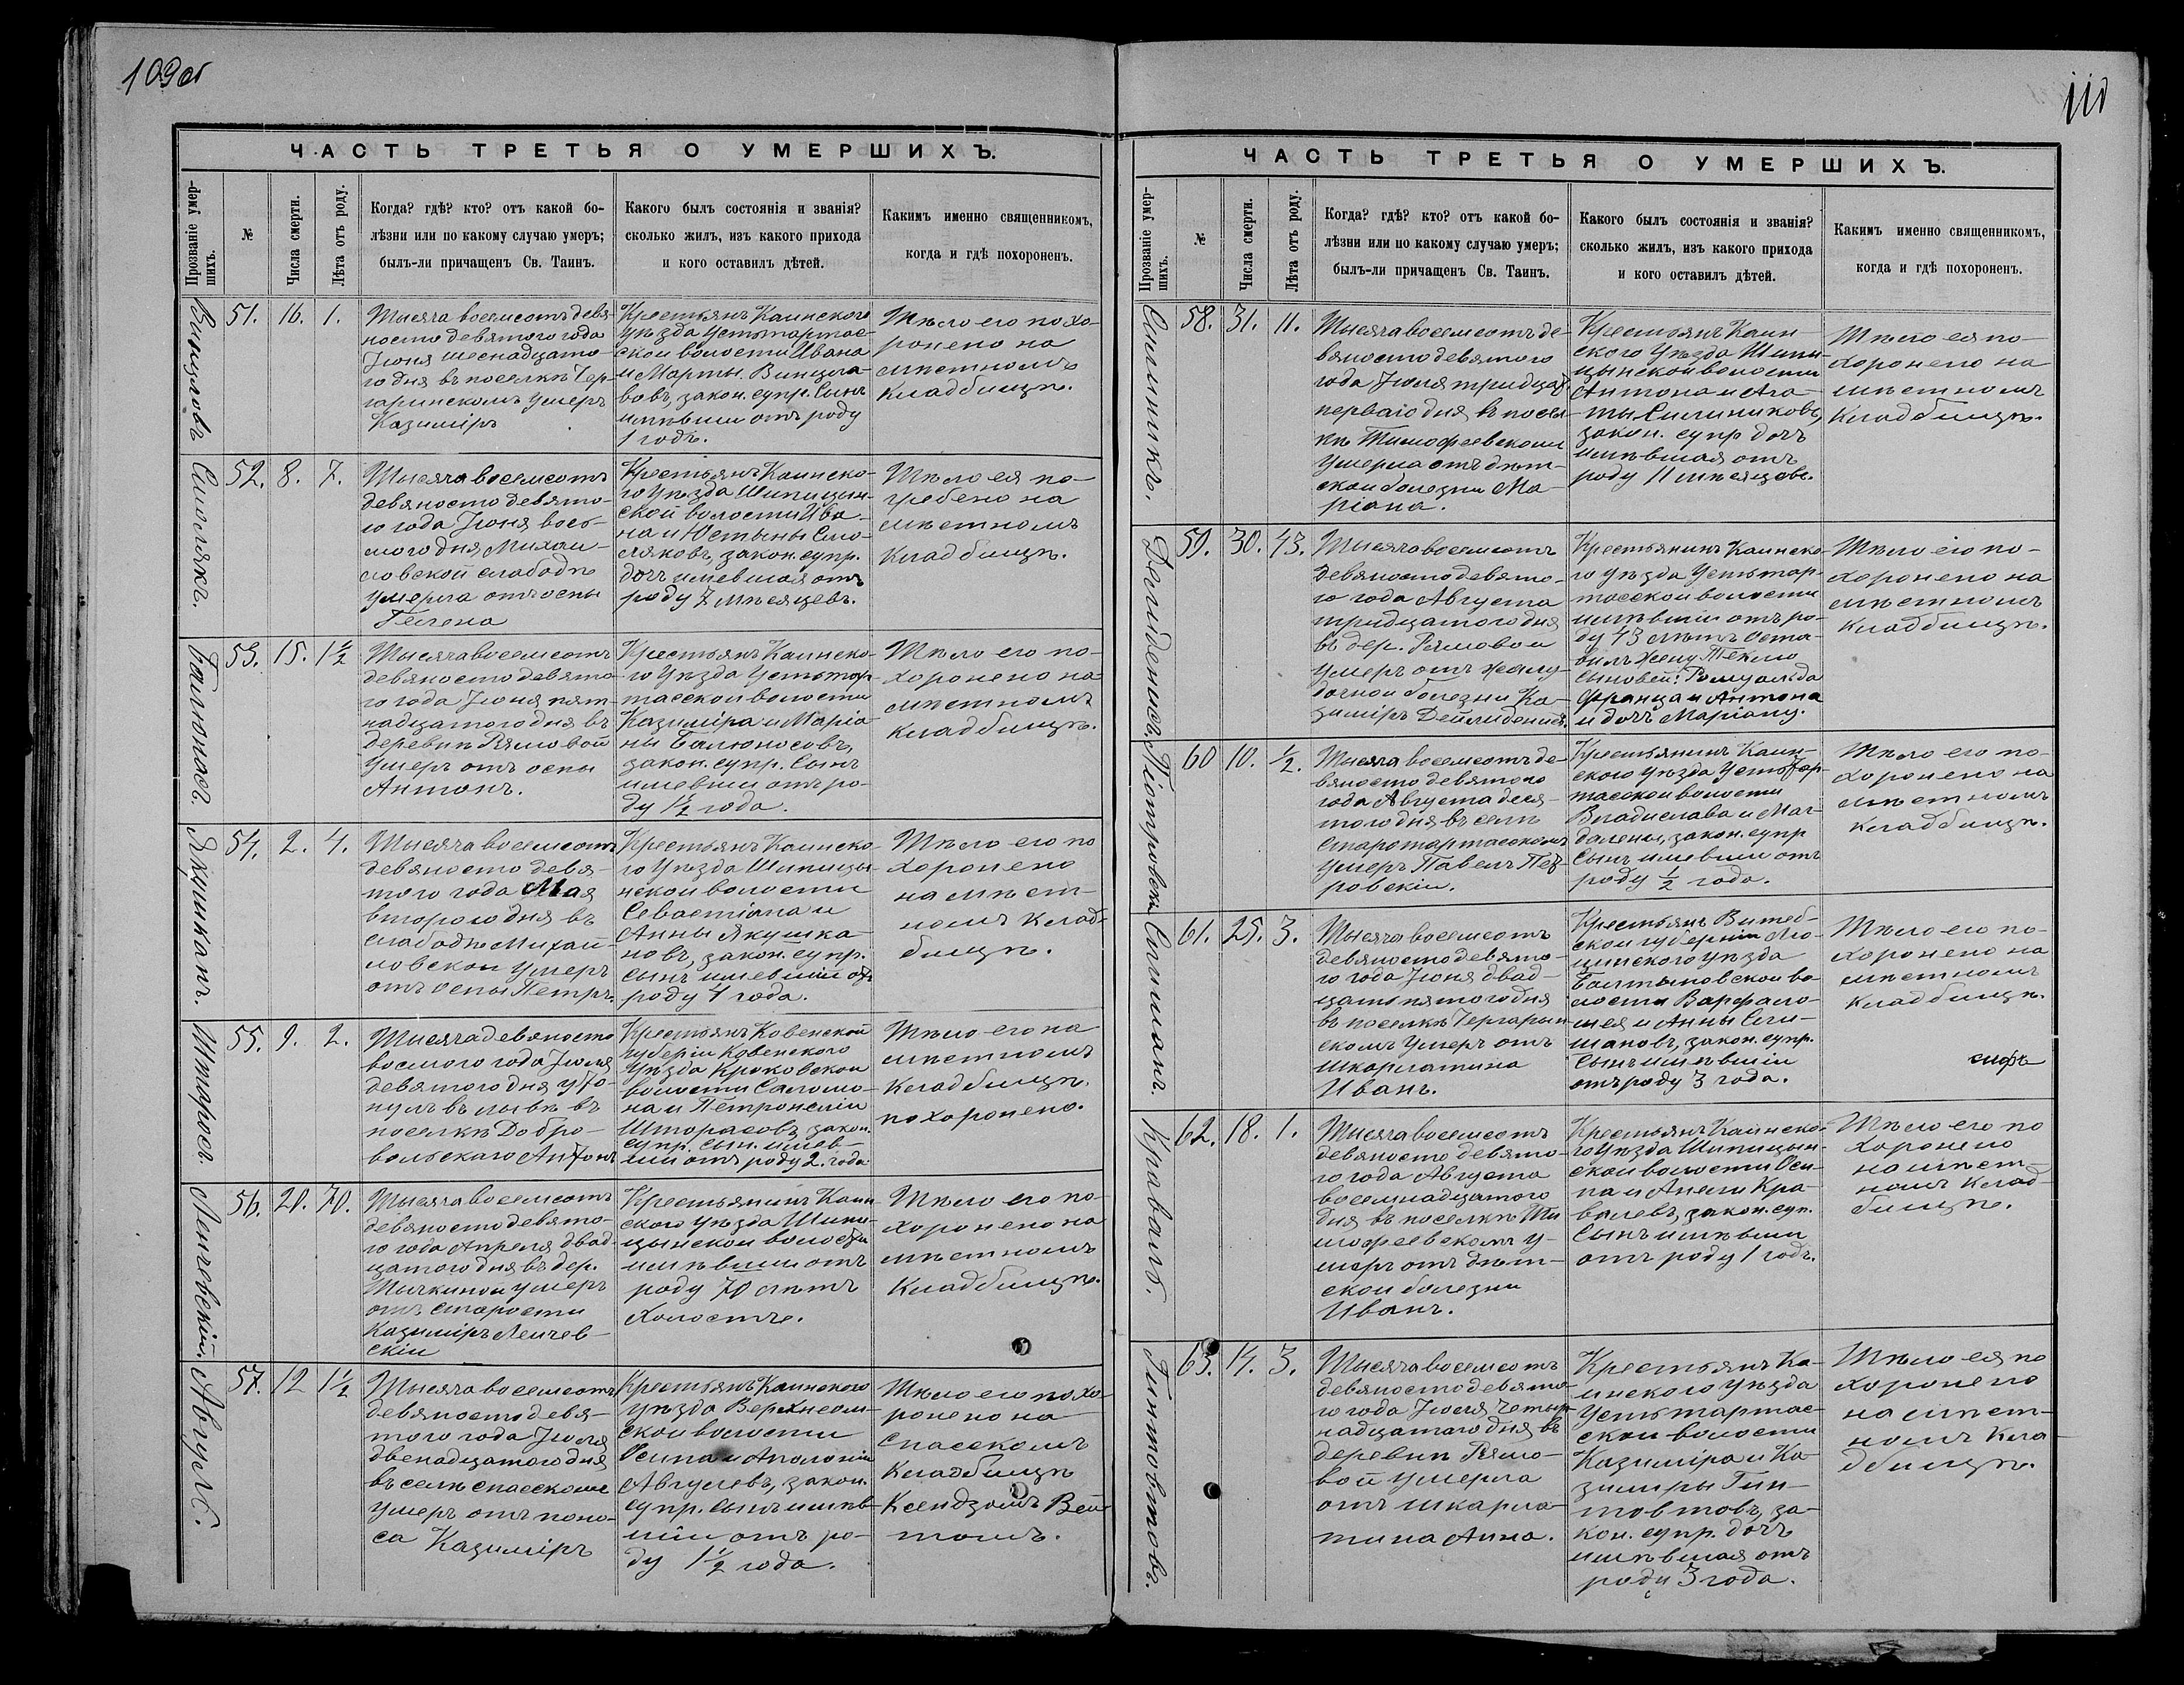 109об
ЧАСТЬ ТРЕТЬЯ О УМЕРШИХЪ.
Прозваніе умер-
шихъ.
№
Числа смерти.
Лѣта отъ роду.
Когда? гдѣ? кто? отъ какой бо-
лѣзни или по какому случаю умеръ;
былъ-ли причащенъ Св. Таинъ.
Какого былъ состоянія и званія?
сколько жилъ, изъ какого прихода
и кого оставилъ дѣтей.
Какимъ именно священникомъ,
когда и гдѣ похороненъ.
Винцловъ
51.
16.
1.
Тысяча восемсотъ девя-
носто девятого года
Іюня шеснадцато-
го дня въ поселкѣ Гер-
гаринскомъ умеръ
Казиміръ
Крестьянъ Каинского
уѣзда Устьтартас-
ской волости Ивана
и Марты Винцло-
вовъ, закон. супр. Сынъ
имѣвши отъ роду
1 годъ.
Тѣло его похо-
ронено на
мѣстномъ
кладбищѣ.
Смолякъ.
52.
8.
7.
Тысяча восемсотъ
девяносто девято-
го года Іюня вось-
мого дня Михаи-
ловской слабодѣ
умерла отъ оспы
Гелена
Крестьянъ Каинско-
го уѣзда Шипицын-
ской волости Ива-
на и Юстыны Смо-
ляковъ, закон. супр.
дочь имевшая отъ
роду 7 мѣсяцевъ.
Тѣло ея по-
гребено на
мѣстномъ
кладбищѣ.
Балюнасъ.
53.
15.
1 1/2
Тысяча восемсотъ
девяносто девято-
го года Іюня пят-
надцатого дня въ
деревнѣ Рямовой
умеръ отъ оспы
Антонъ.
Крестьянъ Каинско-
го уѣзда Устьтар-
тасской волости
Казиміра и Марiа-
ны Балюносовъ,
закон. супр. Сынъ
имевши отъ ро-
ду 1 1/2 года.
Тѣло его по-
хоронено на
мѣстномъ
кладбищѣ.
Якушканъ.
54.
2.
4.
Тысяча восемсотъ
девяносто девя-
того года Мая
второго дня въ
слабодѣ Михай-
ловской умеръ
отъ оспы Петръ.
Крестьянъ Каинско-
го уѣзда Шипицы-
нской волости
Севастіана и
Анны Якушка-
новъ, закон. супр.
сынъ имевшій отъ
роду 4 года.
Тѣло его по
хоронено
на мѣст-
номъ клад-
бищѣ.
Шторосъ.
55.
9.
2.
Тысяча девяносто
восмого года Іюля
девятого дня уто-
нулъ въ
поселкѣ Добро-
вольскаго Антонъ
Крестьянъ Ковенской
губерніи Ковенского
уѣзда Кроковской
волости Саломо-
на и Петронеліи
Шторасовъ закон.
супр. сын. имев-
ши отъ роду 2. года
Тѣло его на
мѣстномъ
кладбищѣ
похоронено.
Ленчевскій.
56.
20.
70.
Тысяча восемсотъ
девяносто девято-
го года Апреля двад-
цатого дня въ дер.
Тычкиной умеръ
отъ старости
Казиміръ Ленчев-
скіи
Крестьянинъ Каин
ского уѣзда Шипи-
цынской волости
имѣвши отъ
роду 70 лѣтъ
Холостъ.
Тѣло его по-
хоронено на
мѣстномъ
кладбищѣ.
Августъ.
57.
12
1 1/2
Тысяча восемсотъ
девяносто девя-
того года Іюля
двенадцатого дня
въ селѣ Спасскомъ
умеръ отъ поно-
са Казиміръ
Крестьянъ Каинского
уѣзда Верхнеом-
ской волости
Осипа и Аполоніи
Августевъ, закон.
супр. сынъ имѣв-
шіи отъ ро-
ду 1 1/2 года.
Тѣло его похо-
ронено на
Спасскомъ
кладбищѣ
Ксендзомъ Вей
томъ.
110
ЧАСТЬ ТРЕТЬЯ О УМЕРШИХЪ.
Прозваніе умер-
шихъ.
№
Числа смерти.
Лѣта отъ роду.
Когда? гдѣ? кто? отъ какой бо-
лѣзни или по какому случаю умеръ;
былъ-ли причащенъ Св. Таинъ.
Какого былъ состоянія и званія?
сколько жилъ, изъ какого прихода
и кого оставилъ дѣтей.
Какимъ именно священникомъ,
когда и гдѣ похороненъ.
58.
31.
11.
Тысяча восемсотъ де-
вяносто девятого
года Іюля тридцать
перваго дня въ посел
кѣ Тимофеевскомъ
умерла отъ дѣт-
ской болезни Ма-
ріана.
Крестьянъ Каин
ского уѣзда Шипи-
цынской волости
Антона и Ага-
ты Силинниковъ,
закон. супр дочь
имѣвшая отъ
роду 11 мѣсяцовъ.
Тѣло ея по-
хоронено на
мѣстномъ
кладбищѣ.
Дейлиденисъ.
59.
30.
43.
Тысяча восемсотъ
девяносто девято-
го года Августа
тридцатого дня
въ дер. Рямовой
умеръ отъ желу-
дочной болезни Ка-
зиміръ Дейлиденисъ.
Крестьянинъ Каинско-
го уѣзда Устьтар-
тасской волости
имѣвши отъ ро-
ду 43 лѣтъ оста-
вилъ жену Теклю
сыновей: Ромуальда
Франца и Антона
и дочь Маріану.
Тѣло его по-
хоронено на
мѣстномъ
кладбищѣ.
Піотровскій
60
10.
1/2.
Тысяча восемсотъ де-
вяносто девятого
года Августа деся-
того дня въ селѣ
Старотартасскомъ
умеръ Павелъ Пет
ровскіи.
Крестьянинъ Каин-
ского уѣзда Устьтар-
тасской волости
Владислава и Маг-
далены, закон. супр
Сынъ имевши отъ
роду 1/2 года.
Тѣло его по-
хоронено на
мѣстномъ
кладбищѣ.
61.
25.
3.
Тысяча восемсотъ
девяносто девято-
го года Іюня двад-
цать пятого дня
въ поселкѣ Гергарын
скомъ умеръ отъ
шкарлатина
Иванъ.
Крестьянъ Витеб-
ской губерніи Лю-
цинского уѣзда
Балтыновской во-
лости Варфало-
мея и Анны
закон. супр.
Сынъ имѣвшіи
отъ роду 3 года.
Тѣло его по-
хоронено на
мѣстномъ
кладбищѣ.
Кравалъ.
62.
18.
1.
Тысяча восемсотъ
девяносто девято-
го года Августа
восемнадцатого
дня въ поселкѣ Ти
мофеевскомъ у-
меръ отъ дѣт-
ской болезни
Иванъ.
Крестьянъ Каинско-
го уѣзда Шипицын-
ской волости Оси-
па и Анели Кра-
валевъ, закон. суп.
Сынъ имѣвши
отъ роду 1 годъ.
Тѣло его по
хоронено
на мѣст-
номъ клад-
бищѣ.
Гинтовтовъ.
63.
14.
3.
Тысяча восемсотъ
девяносто девято-
го года Іюля четыр-
надцатого дня въ
деревнѣ Рямо-
вой умерла
отъ шкарла-
тина Анна.
Крестьянъ Ка-
инского уѣзда
Устьтартас-
ской волости
Казиміра и Ка-
зимиры Гин-
товтовъ, за-
кон. супр. дочь
имѣвшая отъ
роду 3 года.
Тѣло ея по
хоронено
на мѣст-
номъ кла-
дбищѣ.